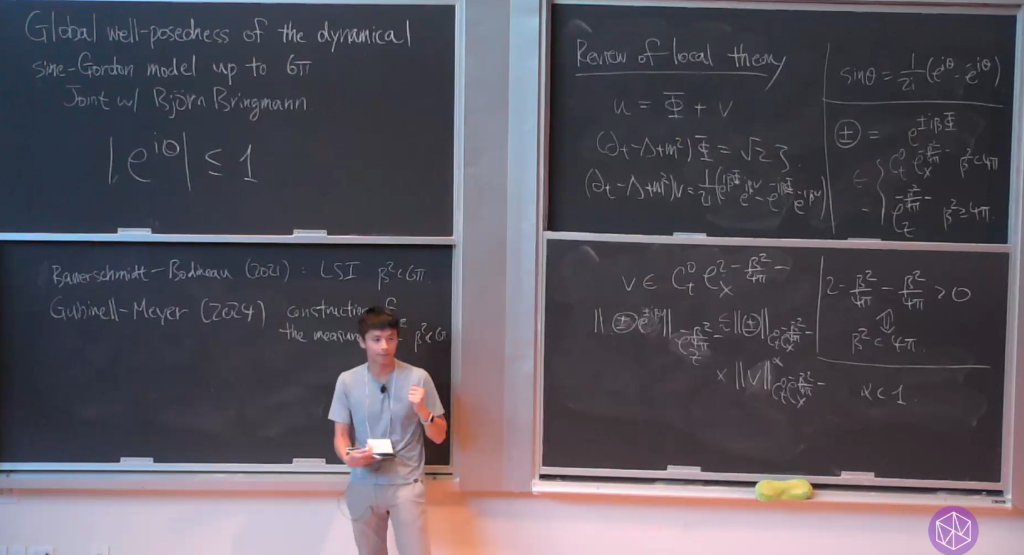 Global well-posedness of the dynamical
sine-Gordon model up to 6π
Joint w/ Björn Bringmann
|e^{iθ}| ≤ 1
Bauerschmidt-Bodineau (2021) : LSI β² < 6π
Gubinelli-Meyer (2024) construction of
the measure β² < 6π
Review of local theory
u = Φ + v
(∂_t - Δ + m²) Φ = √2 ξ
(∂_t - Δ + m²) v = \frac{1}{2i} (e^{iβΦ} e^{iβv} - e^{-iβΦ} e^{-iβv})
sin θ = \frac{1}{2i} (e^{iθ} - e^{iθ})
(±) = e^{±iβΦ}
∈ { C_t^0 C_x^{-\frac{β²}{4π}-} β² < 4π
C_z^{-\frac{β²}{4π}-} β² ≥ 4π
v ∈ C_t^0 C_x^{2-\frac{β²}{4π}-}
2 - \frac{β²}{4π} - \frac{β²}{4π} > 0
⇕
β² < 4π
× ||v||^α
α < 1